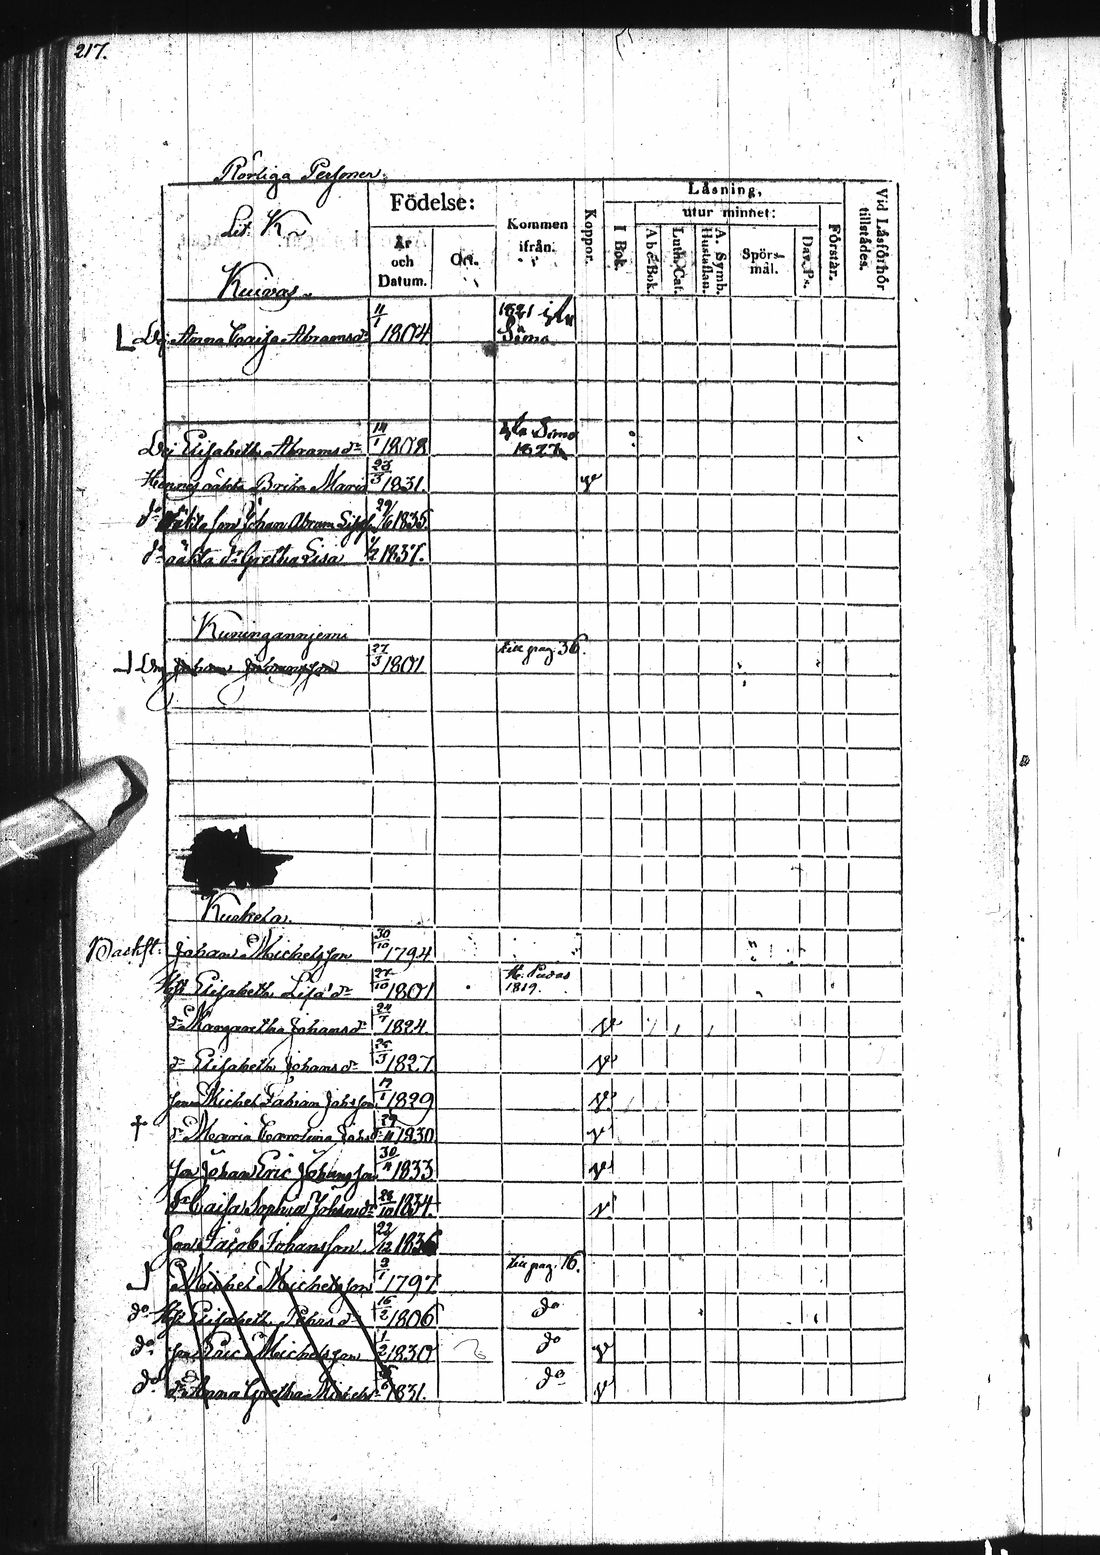 217.
Rörliga Personer.
Lit. K
Kuivas
Födelse:
År och Datum.
Ort.
Kommen ifrån.
Koppor.
Läsning,
utur minnet:
I Bok.
Abc-Bok.
Luth. Cat.
A. Symb. Hustaflan.
Spörsmål.
Dav. Ps.
Förstår.
Vid Läsförhör tillstädes.
Anna Caisa Abramsdr 11/1 1804 1821 Simo
Elisabeth Abramsdr 14/1 1808 Simo 1827
Hennes oäkta Brita Maria 23/3 1831. v
do oäkta son Johan Abram 29/6 1835
do oäkta dr Gretha Lisa 1837.
Kuninganniemi
Johan Johansson 27/3 1801 till pag. 36.
Kuskela.
Backst: Johan Michelsson 30/10 1794
Hst Elisabeth Lisa dr 27/10 1801 1819.
dr Margaretha Johansdr 24/7 1824. v
dr Elisabeth Johansdr 25/3 1827 v
son Michel Fabian Johsson 19/1 1829 v
† dr Maria Carolina Johsdr 29/11 1830 v
son Johan Eric Johansson 30/ 1833 v
dr Caisa Sophia Johansdr 28/10 1834. v
son Jacob Johansson 22/12 1836
Michel Michelsson 9/1 1797 till pag. 16.
do Hst Elisabeth Pehrsdr 16/2 1806 do
do son Eric Michelsson 1/2 1830 do v
do dr Anna Gretha Michelsdr 1831. do v